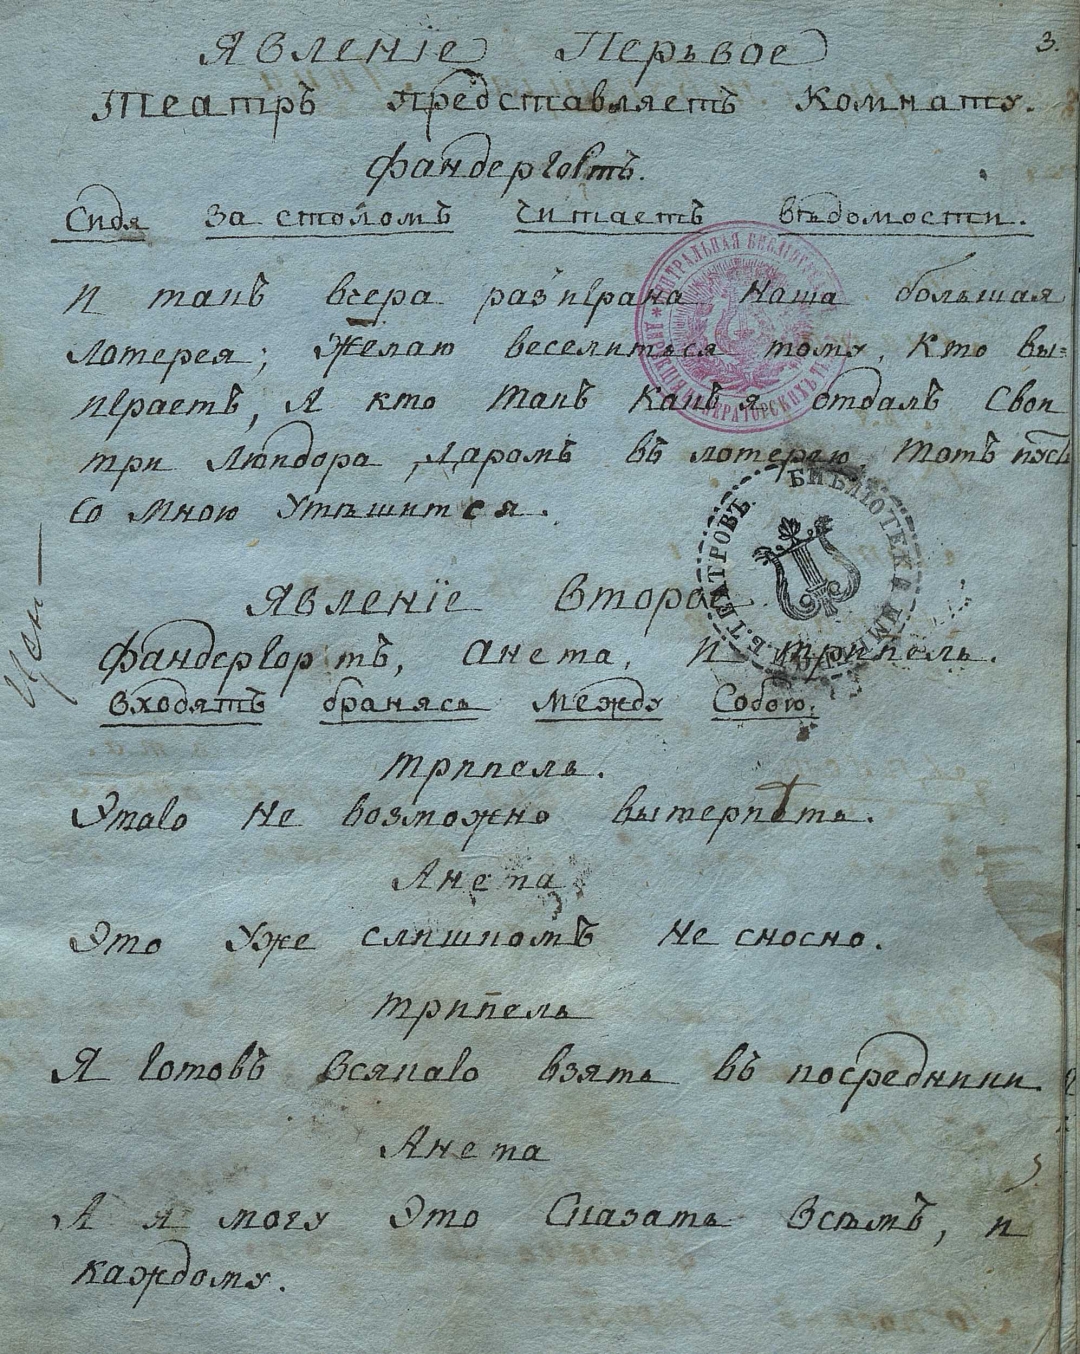 3.
Явленїе Перьвое
Театръ представляетъ комнату.
Фандерговтъ.
Сидя за столомъ читаетъ вѣдомости.
И такъ вчера разъиграна наша большая
лотерея; Желаю веселиться тому, кто вы=
играетъ, А кто такъ какъ я отдалъ свои
три люидора, даромъ въ лотерею, тотъ пусть
со мною утѣшится.
Явленїе Второе
Фандергортъ, Анета, И Трипель.
входятъ бранясь между собою.
Трипель.
Этаго не возможно вытерпѣть.
Анета
Это уже слишкомъ не сносно.
Трипель
Я готовъ всякаго взять въ посредники.
Анета
А я могу это сказать всѣмъ, и
каждому.
ЦЕНТРАЛЬНАЯ БИБЛІОТЕКА
ДИРЕКЦІЯ ИМПЕРАТОРСКИХЪ
БИБЛІОТЕКА ИМП.
С.П.Б. ТЕАТРОВЪ.